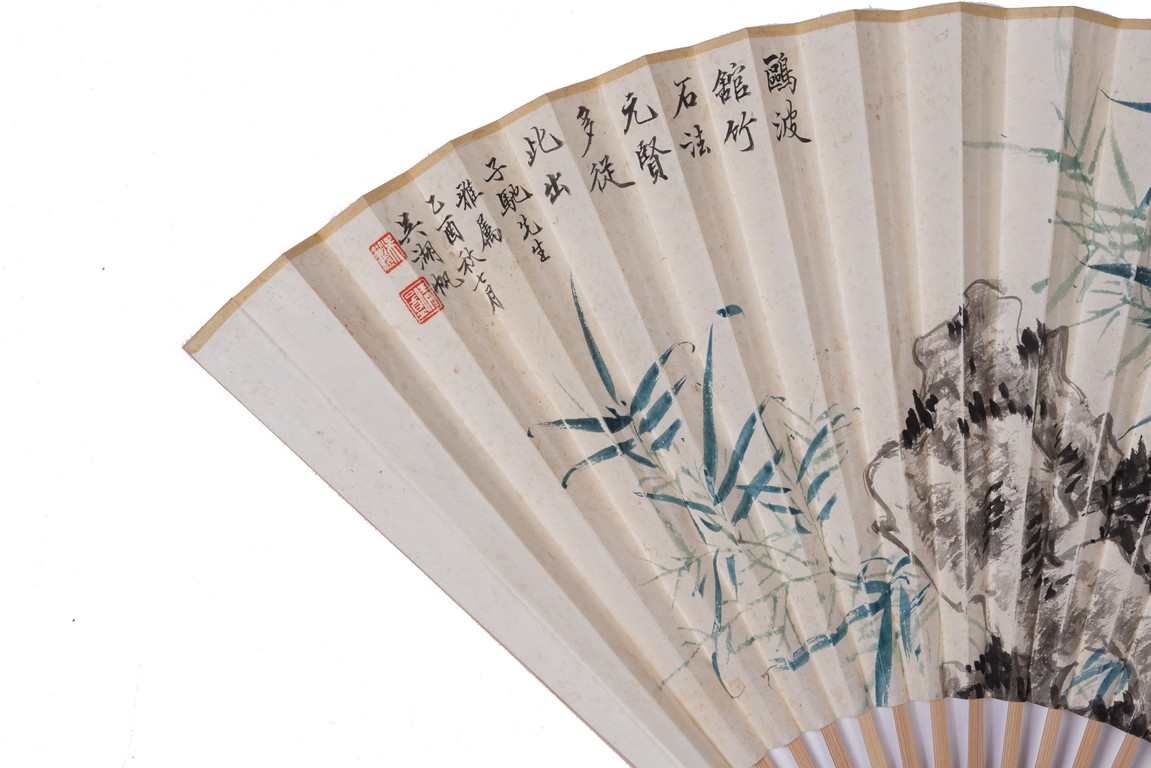 鷗波
舘竹
石法
元賢
多從
此出
子馳先生
雅屬
乙酉秋七月
吳湖帆